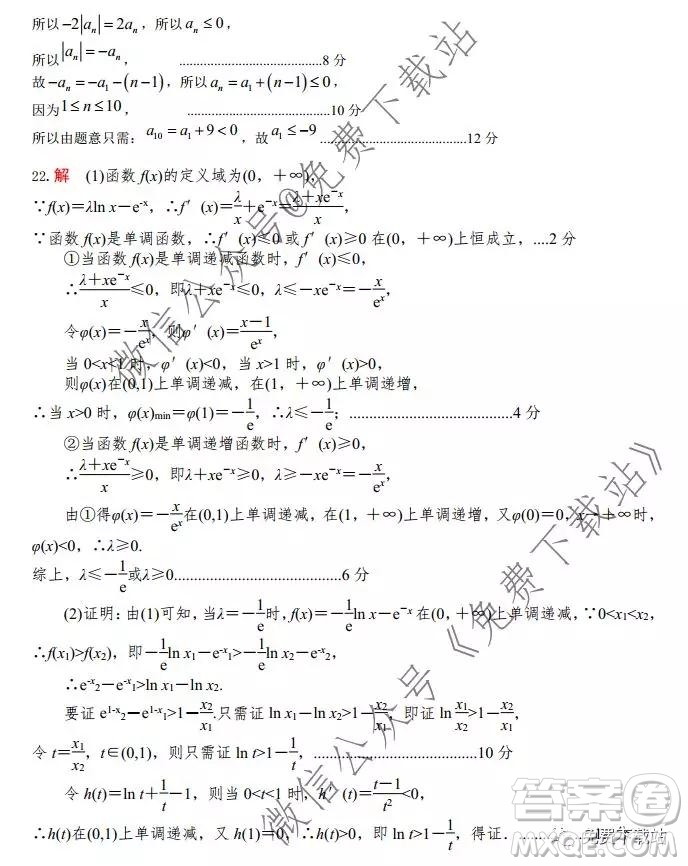 所以-2|aₙ|=2aₙ，所以aₙ≤0，
所以|aₙ|=-aₙ，……………………………8分
故-aₙ=-a₁-(n-1)，所以aₙ=a₁+(n-1)≤0，
因为1≤n≤10，……………………………10分
所以由题意只需：a₁₀=a₁+9<0，故a₁≤-9……………………………12分
22.解 (1)函数f(x)的定义域为(0，+∞)，
∵f(x)=λln x-e⁻ˣ，∴f′(x)=λ/x+e⁻ˣ=(λ+xe⁻ˣ)/x，
∵函数f(x)是单调函数，∴f′(x)≤0或f′(x)≥0在(0，+∞)上恒成立，....2分
①当函数f(x)是单调递减函数时，f′(x)≤0，
∴(λ+xe⁻ˣ)/x≤0，即λ+xe⁻ˣ≤0，λ≤-xe⁻ˣ=-x/eˣ，
令φ(x)=-x/eˣ，则φ′(x)=(x-1)/eˣ，
当0<x<1时，φ′(x)<0，当x>1时，φ′(x)>0，
则φ(x)在(0,1)上单调递减，在(1，+∞)上单调递增，
∴当x>0时，φ(x)min=φ(1)=-1/e，∴λ≤-1/e；……………………………4分
②当函数f(x)是单调递增函数时，f′(x)≥0，
∴(λ+xe⁻ˣ)/x≥0，即λ+xe⁻ˣ≥0，λ≥-xe⁻ˣ=-x/eˣ，
由①得φ(x)=-x/eˣ在(0,1)上单调递减，在(1，+∞)上单调递增，又φ(0)=0，x→+∞时，
φ(x)<0，∴λ≥0.
综上，λ≤-1/e或λ≥0……………………………6分
(2)证明：由(1)可知，当λ=-1/e时，f(x)=-1/e ln x-e⁻ˣ在(0，+∞)上单调递减，∵0<x₁<x₂，
∴f(x₁)>f(x₂)，即-1/e ln x₁-e^(-x₁)>-1/e ln x₂-e^(-x₂)，
∴e^(-x₂)-e^(-x₁)>ln x₁-ln x₂.
要证e^(1-x₂)-e^(1-x₁)>1-x₂/x₁.只需证ln x₁-ln x₂>1-x₂/x₁，即证ln x₁/x₂>1-x₂/x₁，
令t=x₁/x₂，t∈(0,1)，则只需证ln t>1-1/t，……………………………10分
令h(t)=ln t+1/t-1，则当0<t<1时，h′(t)=(t-1)/t²<0，
∴h(t)在(0,1)上单调递减，又h(1)=0，∴h(t)>0，即ln t>1-1/t，得证.
微信公众号@免费下载站
微信公众号《免费下载站》
答案圈
免费下载站